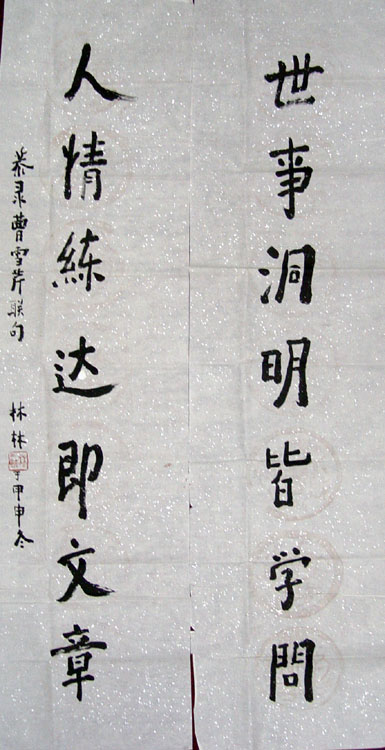 世事洞明皆学問
人情练达即文章
恭录曹雪芹联句
林林
于甲申冬